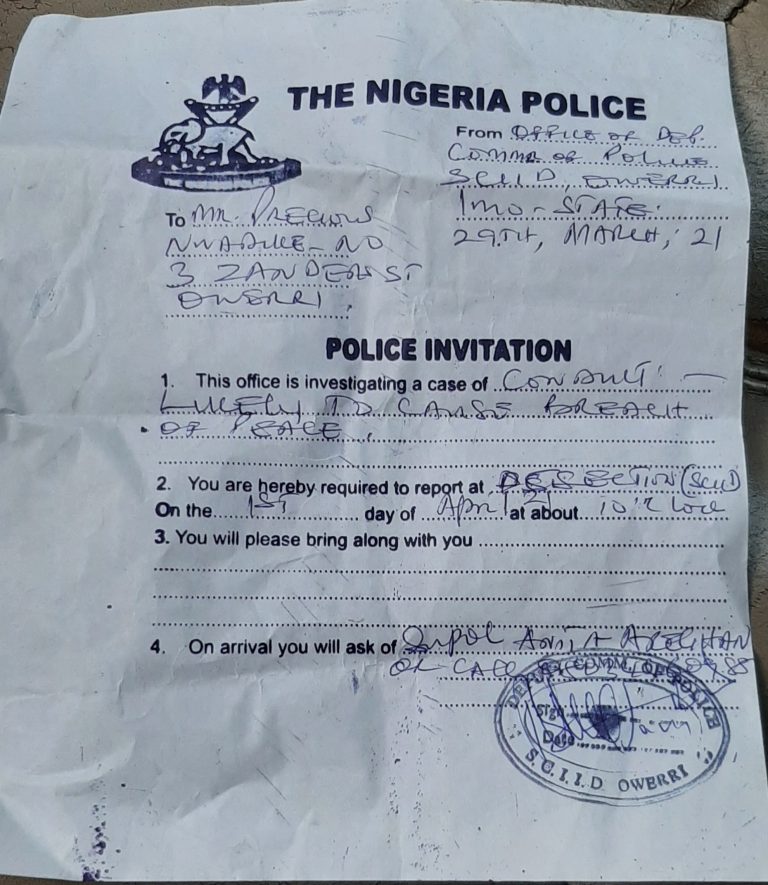 THE NIGERIA POLICE
From OFFICE OF DEP.
COMMR OF POLICE
SCIID, OWERRI
IMO-STATE.
29TH, MARCH, 21
To MR. PRECIOUS
NWADIKE - NO
3 ZANDERS ST
OWERRI.
POLICE INVITATION
1. This office is investigating a case of CONDUCT -
LIKELY TO CAUSE BREACH
OF PEACE.
2. You are hereby required to report at SECTION (SCIID)
On the 1ST day of April 21 at about 10
3. You will please bring along with you
4. On arrival you will ask of
OR CALL
DEPUTY COMM. OF POLICE
Sign
Date
S.C.I.I.D OWERRI